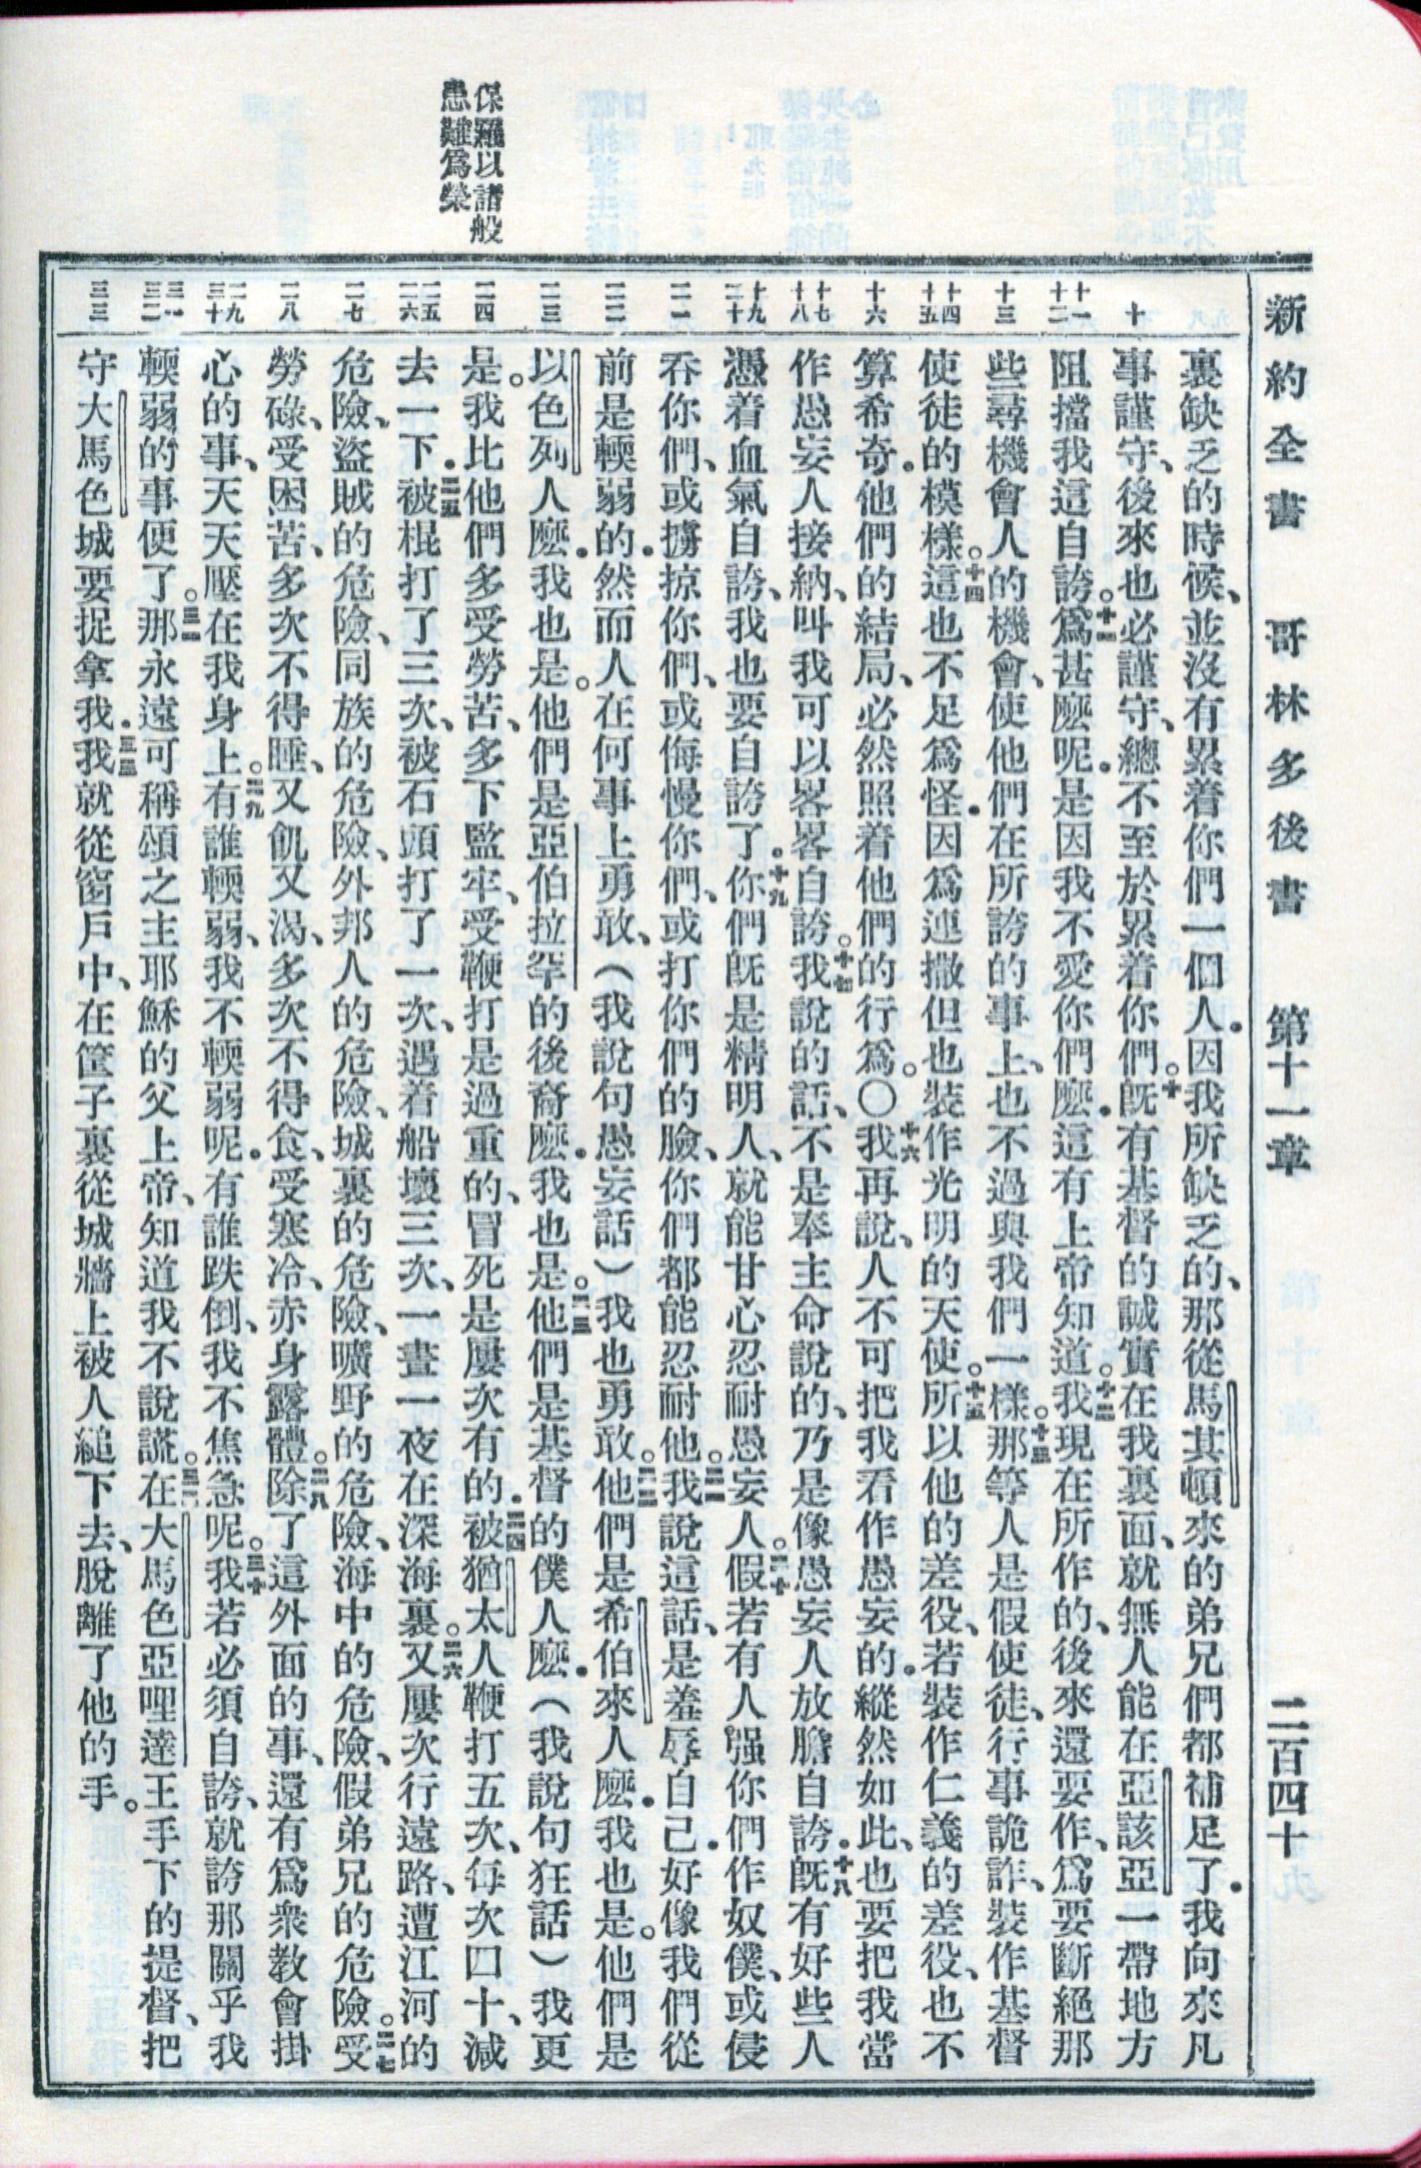 新約全書　哥林多後書　第十一章　二百四十
保羅以諸般
患難爲榮
十
十一
十二
十三
十四
十五
十六
十七
十八
十九
二十
二一
二二
二三
二四
二五
二六
二七
二八
二九
三十
三一
三二
三三
裏缺乏的時候、並沒有累着你們一個人．因我所缺乏的、那從馬其頓來的弟兄們都補足了．我向來凡
事謹守、後來也必謹守、總不至於累着你們。十旣有基督的誠實在我裏面、就無人能在亞該亞一帶地方
阻擋我這自誇。十一爲甚麼呢．是因我不愛你們麼．這有上帝知道。十二我現在所作的、後來還要作、爲要斷絕那
些尋機會人的機會、使他們在所誇的事上、也不過與我們一樣。十三那等人是假使徒、行事詭詐、裝作基督
使徒的模樣。十四這也不足爲怪．因爲連撒但也裝作光明的天使。十五所以他的差役、若裝作仁義的差役、也不
算希奇．他們的結局、必然照着他們的行爲。○十六我再說、人不可把我看作愚妄的．縱然如此、也要把我當
作愚妄人接納、叫我可以畧畧自誇。十七我說的話、不是奉主命說的、乃是像愚妄人放膽自誇．十八旣有好些人
憑着血氣自誇、我也要自誇了。十九你們旣是精明人、就能甘心忍耐愚妄人。二十假若有人强你們作奴僕、或侵
吞你們、或擄掠你們、或侮慢你們、或打你們的臉、你們都能忍耐他。二一我說這話、是羞辱自己．好像我們從
前是輭弱的．然而人在何事上勇敢、（我說句愚妄話）我也勇敢。二二他們是希伯來人麼．我也是。他們是
以色列人麼．我也是。他們是亞伯拉罕的後裔麼．我也是。二三他們是基督的僕人麼．（我說句狂話）我更
是。我比他們多受勞苦、多下監牢、受鞭打是過重的、冒死是屢次有的．二四被猶太人鞭打五次、每次四十、減
去一下．二五被棍打了三次、被石頭打了一次、遇着船壞三次、一晝一夜在深海裏。二六又屢次行遠路、遭江河的
危險、盜賊的危險、同族的危險、外邦人的危險、城裏的危險、曠野的危險、海中的危險、假弟兄的危險。二七受
勞碌、受困苦、多次不得睡、又飢又渴、多次不得食、受寒冷、赤身露體。二八除了這外面的事、還有爲衆教會掛
心的事、天天壓在我身上。二九有誰輭弱、我不輭弱呢．有誰跌倒、我不焦急呢。三十我若必須自誇、就誇那關乎我
輭弱的事便了。三一那永遠可稱頌之主耶穌的父上帝、知道我不說謊。三二在大馬色亞哩達王手下的提督、把
守大馬色城要捉拿我．三三我就從窗戶中、在筐子裏從城牆上被人縋下去、脫離了他的手。